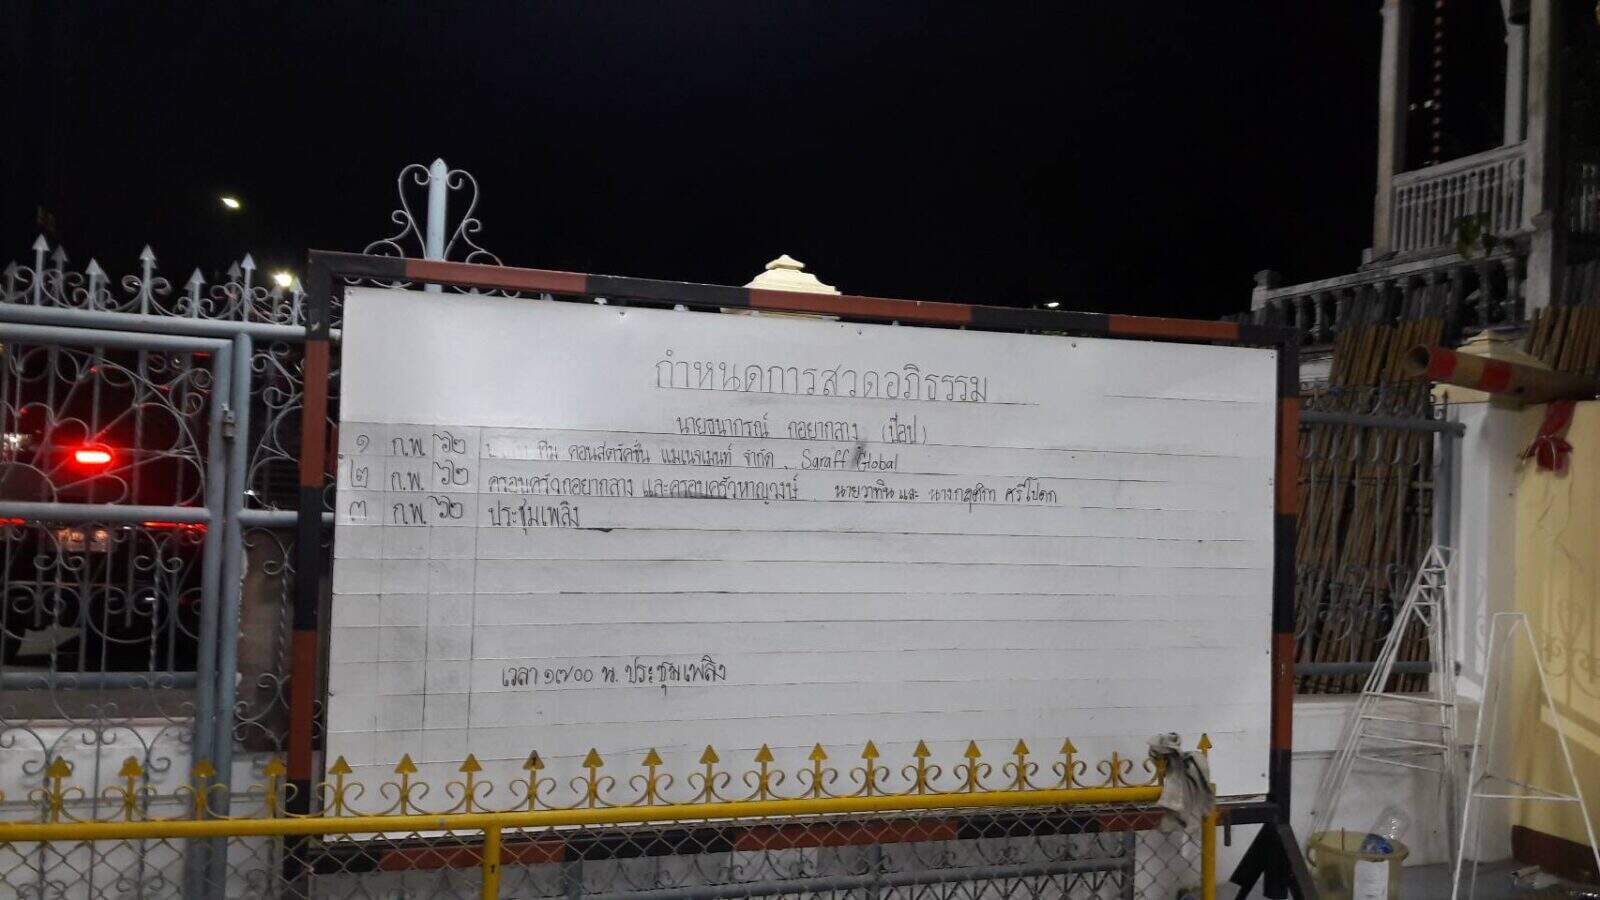 กำหนดการสวดอภิธรรม
นายธนากรณ์ กอยากลาง (ป๊อป)
๑ ก.พ. ๖๒ ทีม คอนสตรัคชั่น แมเนจเมนท์ จำกัด , Saraff Global
๒ ก.พ. ๖๒ ครอบครัวกอยากลาง และครอบครัวหาญวงษ์ , นายวาทิน และ นาง ศรีโปดก
๓ ก.พ. ๖๒ ประชุมเพลิง
เวลา ๑๗๐๐ น. ประชุมเพลิง